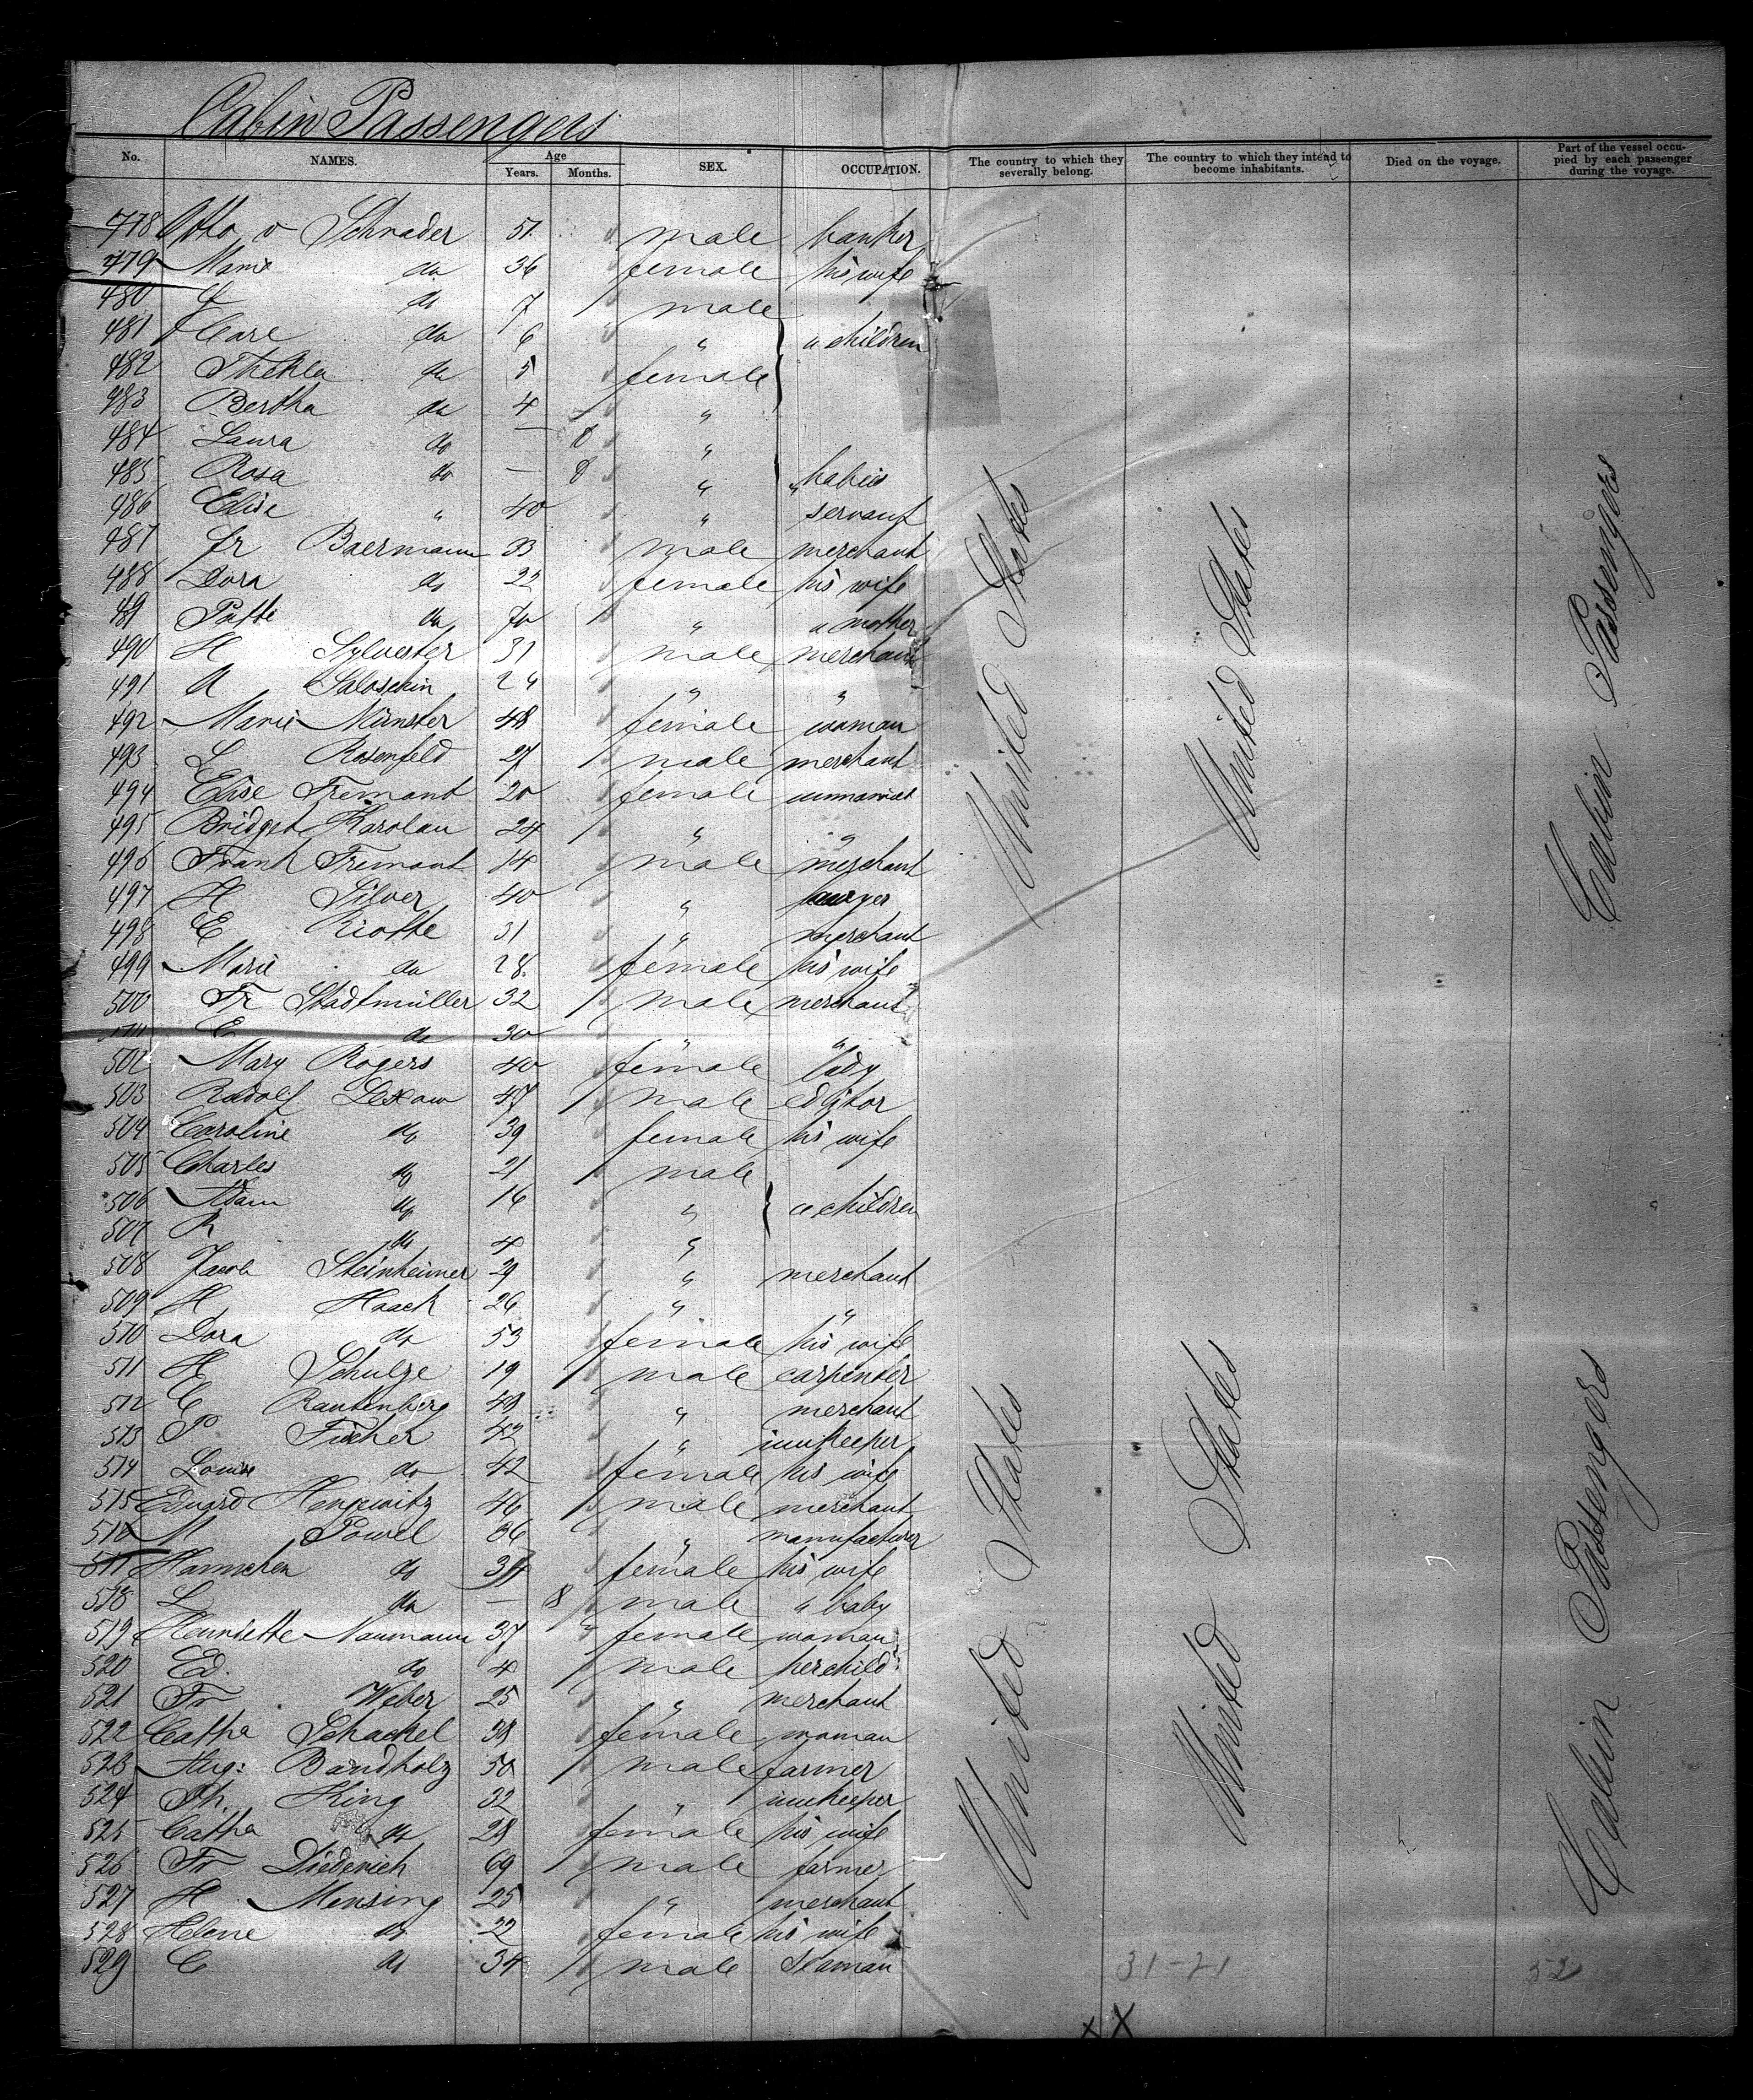 Cabin Passengers
No. NAMES. Age Years. Months. SEX. OCCUPATION. The country to which they severally belong. The country to which they intend to become inhabitants. Died on the voyage. Part of the vessel occupied by each passenger during the voyage.
478 Otto v Schrader 51 male banker
479 Marie do 36 female his wife
480 do 7 male
481 Carl do 6 " " children
482 Thekla do 5 female
483 Bertha do 4 "
484 Laura do — 8 "
485 Rosa do — 8 " " babies
486 Elise " 40 " servant
487 Fr Baermann 33 male merchant
488 Dora do 22 female his wife
49 do 70 " " mother
490 H Sylvester 31 male merchant
491 A Saloschin 24 " "
492 Marie Münster 48 female woman
493 L Rosenfeld 27 male merchant
494 Elise Tremont 20 female
495 Bridget Karolan 24 " "
496 Frank Tremont 14 male merchant
497 H Silver 40 " lawyer
498 E Riotte 31 " merchant
499 Marie do 28 female his wife
500 Fr Stadtmüller 32 male merchant
E do 30 " "
502 Mary Rogers 40 female lady
503 Rudolf Lexow 47 male editor
504 Caroline do 39 female his wife
505 Charles do 21 male
506 Adam do 16 " " children
507 R do 4 "
508 Jacob Steinheimer 29 " merchant
509 H Haack 26 " "
510 Dora do 53 female his wife
511 H Schulze 19 male carpenter
512 C Rautenberg 49 " merchant
513 P Fischer 42 " innkeeper
514 Louise do 42 female his wife
515 Eduard Hengewitz 46 male merchant
516 M Powel 36 " manufacturer
517 Hannchen do 34 female his wife
518 L do — 8 male " baby
519 Henriette Naumann 37 female woman
520 Ed. do 4 male her child
521 Fr Weber 25 " merchant
522 Catha Schackel 38 female woman
523 Aug: Bandholz 50 male farmer
524 Ph. King 32 " innkeeper
525 Catha do 28 female his wife
526 Fr Diederich 69 male farmer
527 H Mensing 25 " merchant
528 Helene do 22 female his wife
529 C do 34 male Seaman
United States United States Cabin Passengers
United States United States Cabin Passengers
31-21 52
X X